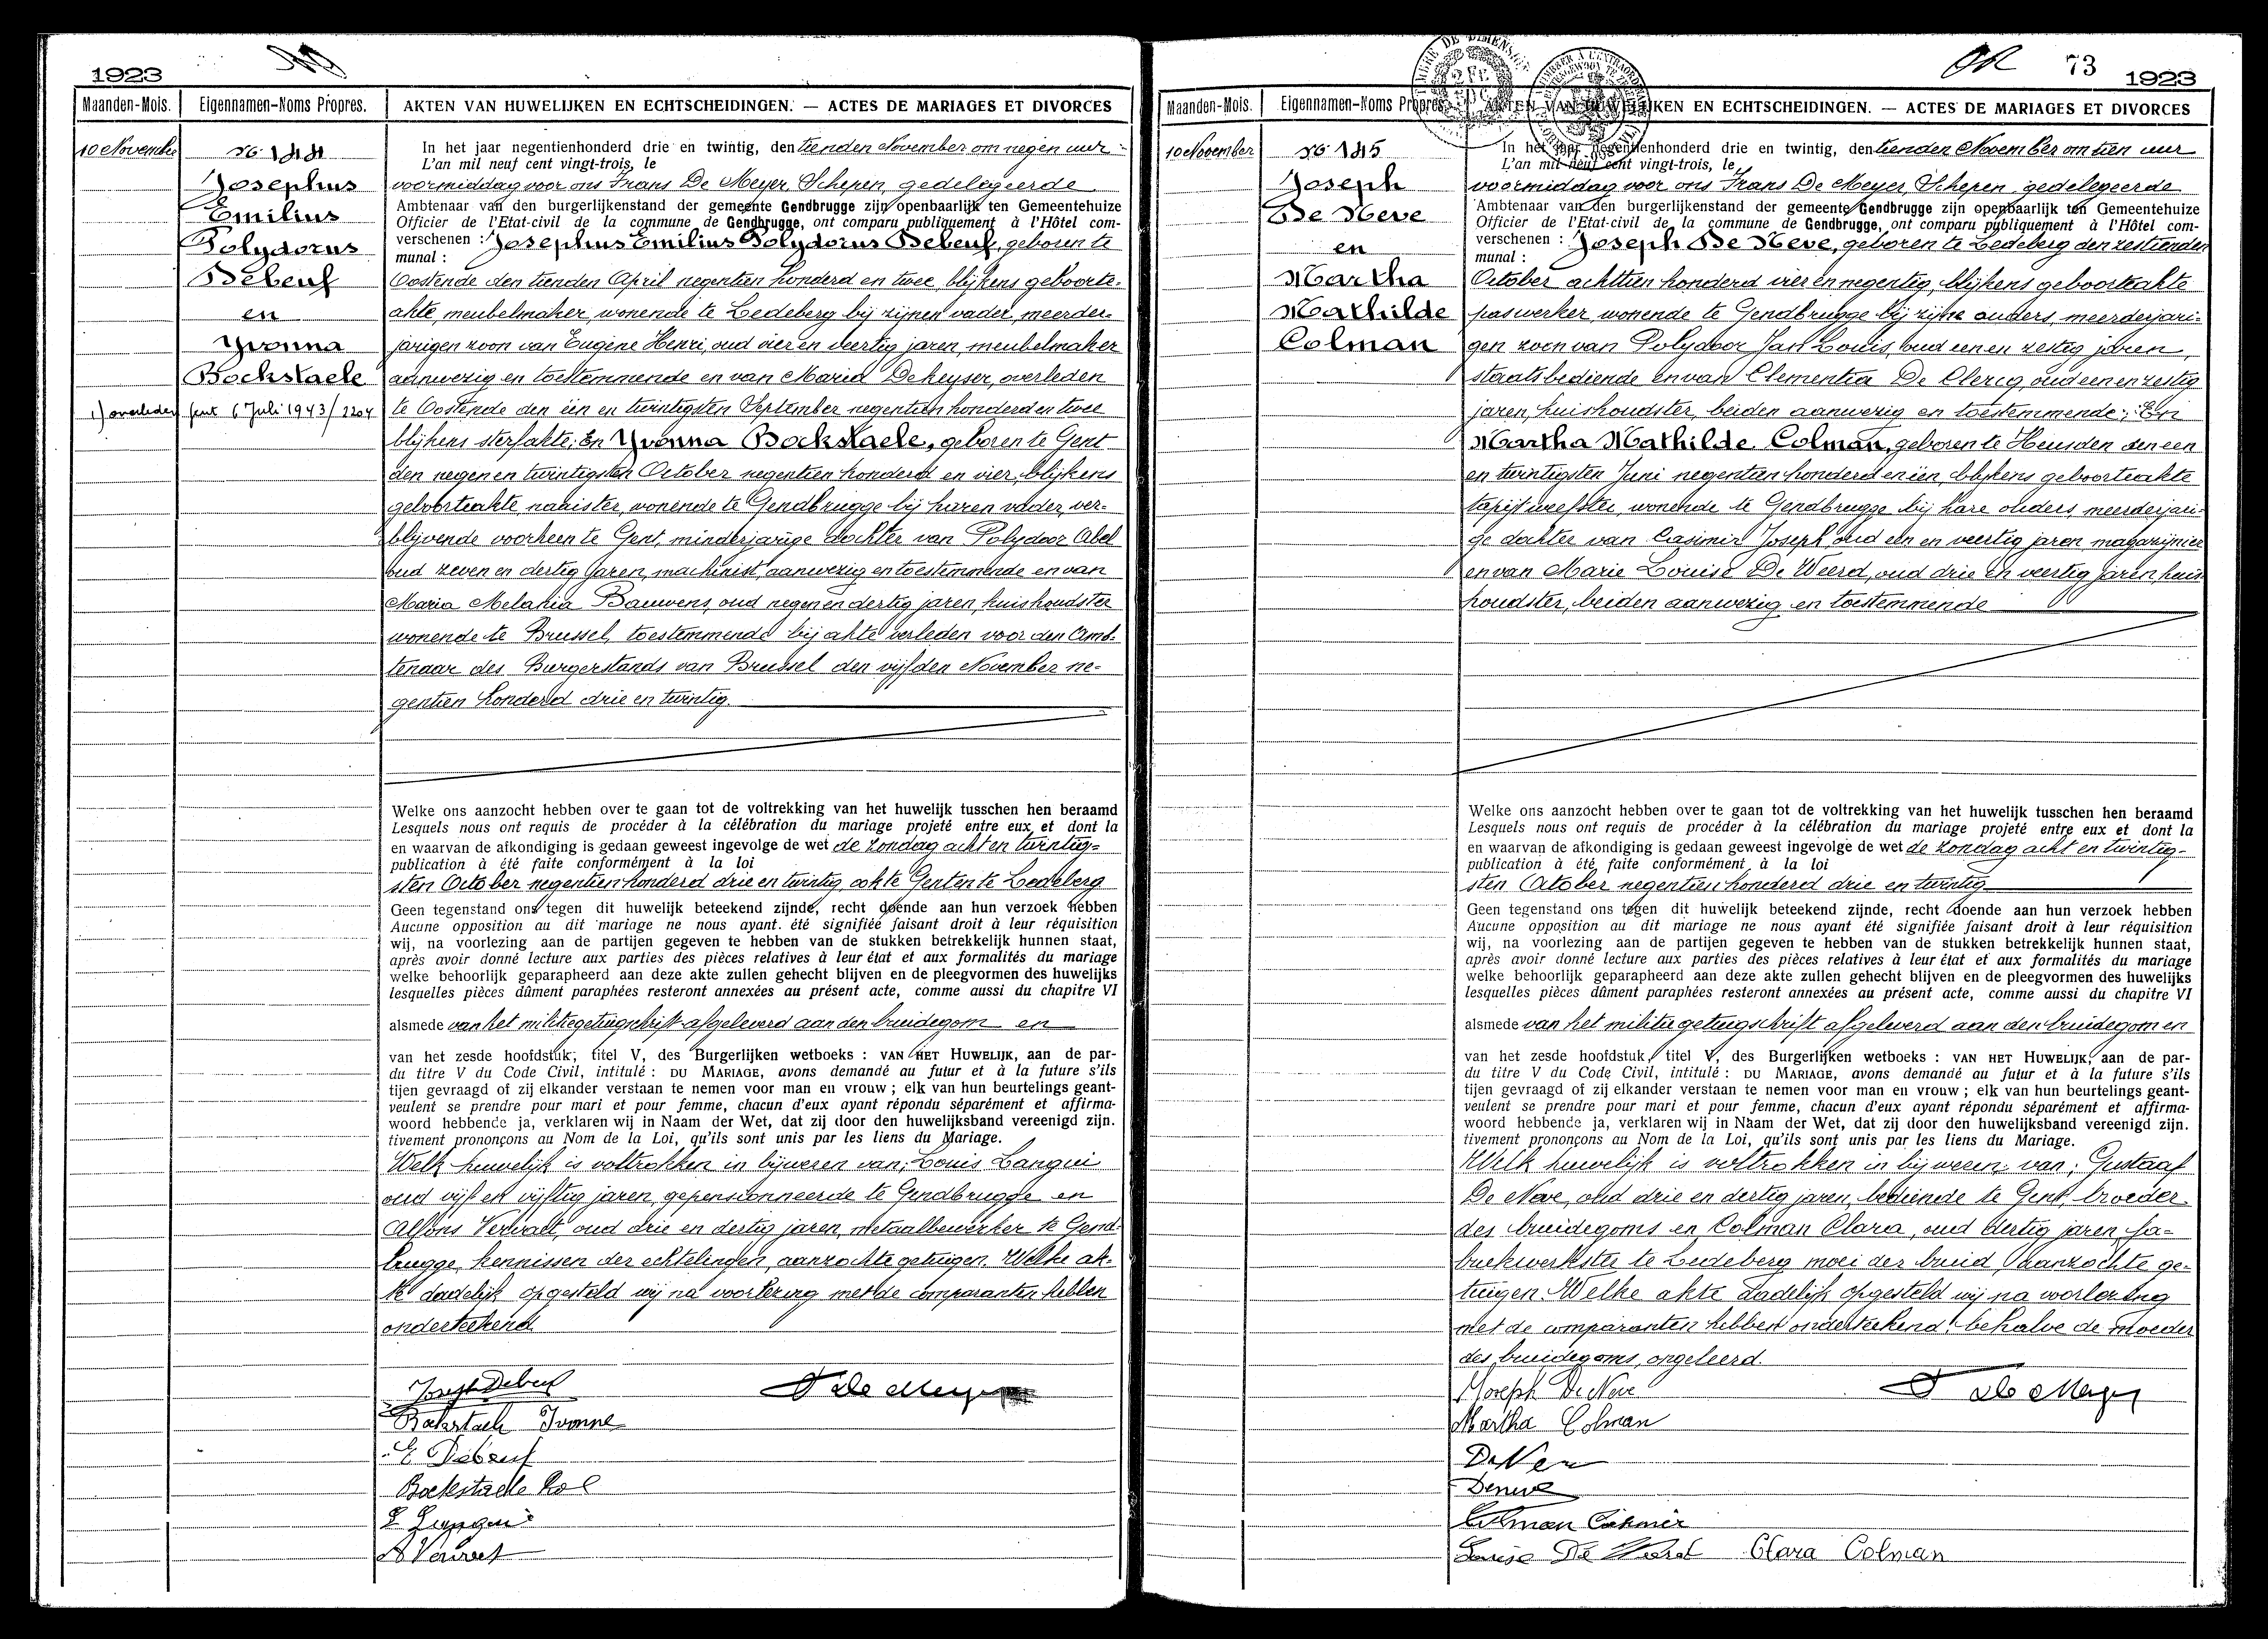 1923
Maanden-Mois.
Eigennamen-Noms Propres.
AKTEN VAN HUWELIJKEN EN ECHTSCHEIDINGEN. — ACTES DE MARIAGES ET DIVORCES
10 November
No 144
Josephus
Emilius
Polydorus
Debeuf
en
Yvonna
Bockstaele
1) overleden Gent 6 Juli 1943/2204
In het jaar negentienhonderd drie en twintig, den tienden November om negen uur
L'an mil neuf cent vingt-trois, le
voormiddag voor ons Frans De Meyer, Schepen, gedelegeerde
Ambtenaar van den burgerlijkenstand der gemeente Gendbrugge zijn openbaarlijk ten Gemeentehuize
Officier de l'Etat-civil de la commune de Gendbrugge, ont comparu publiquement à l'Hôtel com-
verschenen : Josephus Emilius Polydorus Debeuf, geboren te
munal :
Oostende den tienden April negentien honderd en twee, blijkens geboorte-
akte, meubelmaker, wonende te Ledeberg bij zijnen vader, meerder-
jarigen zoon van Eugène Henri, oud vier en veertig jaren, meubelmaker
aanwezig en toestemmende en van Maria Dekeyser, overleden
te Oostende den één en twintigsten September negentien honderd en twee
blijkens sterfakte; En Yvonna Bockstaele, geboren te Gent
den negen en twintigsten October negentien honderd en vier, blijkens
geboorteakte, naaister, wonende te Gendbrugge bij haren vader, ver-
blijvende voorheen te Gent, minderjarige dochter van Polydoor Abel
oud zeven en dertig jaren, machinist, aanwezig en toestemmende en van
Maria Melania Bauwens, oud negen en dertig jaren, huishoudster
wonende te Brussel, toestemmende bij akte verleden voor den Amb-
tenaar des Burgerstands van Brussel den vijfden November ne-
gentien honderd drie en twintig.
Welke ons aanzocht hebben over te gaan tot de voltrekking van het huwelijk tusschen hen beraamd
Lesquels nous ont requis de procéder à la célébration du mariage projeté entre eux et dont la
en waarvan de afkondiging is gedaan geweest ingevolge de wet de zondag acht en twintig-
publication à été faite conformément à la loi
sten October negentien honderd drie en twintig, ook te Gent en te Ledeberg
Geen tegenstand ons tegen dit huwelijk beteekend zijnde, recht doende aan hun verzoek hebben
Aucune opposition au dit mariage ne nous ayant été signifiée faisant droit à leur réquisition
wij, na voorlezing aan de partijen gegeven te hebben van de stukken betrekkelijk hunnen staat,
après avoir donné lecture aux parties des pièces relatives à leur état et aux formalités du mariage
welke behoorlijk geparapheerd aan deze akte zullen gehecht blijven en de pleegvormen des huwelijks
lesquelles pièces dûment paraphées resteront annexées au présent acte, comme aussi du chapitre VI
alsmede van het militiegetuigschrift afgeleverd aan den bruidegom en
van het zesde hoofdstuk, titel V, des Burgerlijken wetboeks : VAN HET HUWELIJK, aan de par-
du titre V du Code Civil, intitulé : DU MARIAGE, avons demandé au futur et à la future s'ils
tijen gevraagd of zij elkander verstaan te nemen voor man en vrouw ; elk van hun beurtelings geant-
veulent se prendre pour mari et pour femme, chacun d'eux ayant répondu séparément et affirma-
woord hebbende ja, verklaren wij in Naam der Wet, dat zij door den huwelijksband vereenigd zijn.
tivement prononçons au Nom de la Loi, qu'ils sont unis par les liens du Mariage.
Welk huwelijk is voltrokken in bijwezen van; Louis Langui
oud vijf en vijftig jaren, gepensionneerde te Gendbrugge en
Alfons Vervaet, oud drie en dertig jaren, metaalbewerker te Gend-
brugge, kennissen der echtelingen, aanzochte getuigen. Welke ak-
te dadelijk opgesteld wij na voorlezing met de comparanten hebben
onderteekend
Joseph Debeuf
Bockstaele Ivonne
E Debeuf
Bockstaele Pol
L Langui
A Vervaet
F De Meyer
OK 73 1923
Maanden-Mois.
Eigennamen-Noms Propres.
AKTEN VAN HUWELIJKEN EN ECHTSCHEIDINGEN. — ACTES DE MARIAGES ET DIVORCES
10 November
No 145
Joseph
De Neve
en
Martha
Mathilde
Colman
In het jaar negentienhonderd drie en twintig, den tienden November om tien uur
L'an mil neuf cent vingt-trois, le
voormiddag voor ons Frans De Meyer, Schepen, gedelegeerde
Ambtenaar van den burgerlijkenstand der gemeente Gendbrugge zijn openbaarlijk ten Gemeentehuize
Officier de l'Etat-civil de la commune de Gendbrugge, ont comparu publiquement à l'Hôtel com-
verschenen : Joseph De Neve, geboren te Ledeberg den zestienden
munal :
October achttien honderd vier en negentig, blijkens geboorteakte
paswerker, wonende te Gendbrugge bij zijne ouders, meerderjari-
gen zoon van Polydoor Jan Louis, oud een en zestig jaren,
staatsbediende en van Clementia De Clercq, oud een en zestig
jaren, huishoudster, beiden aanwezig en toestemmende; En
Martha Mathilde Colman, geboren te Heusden den een
en twintigsten Juni negentien honderd en één, blijkens geboorteakte
tapijtweefster, wonende te Gendbrugge bij hare ouders, meerderjari-
ge dochter van Casimir Joseph, oud één en veertig jaren, magazijnier
en van Marie Louise De Weerd, oud drie en veertig jaren, huis-
houdster, beiden aanwezig en toestemmende
Welke ons aanzocht hebben over te gaan tot de voltrekking van het huwelijk tusschen hen beraamd
Lesquels nous ont requis de procéder à la célébration du mariage projeté entre eux et dont la
en waarvan de afkondiging is gedaan geweest ingevolge de wet de zondag acht en twintig-
publication à été faite conformément à la loi
sten October negentien honderd drie en twintig
Geen tegenstand ons tegen dit huwelijk beteekend zijnde, recht doende aan hun verzoek hebben
Aucune opposition au dit mariage ne nous ayant été signifiée faisant droit à leur réquisition
wij, na voorlezing aan de partijen gegeven te hebben van de stukken betrekkelijk hunnen staat,
après avoir donné lecture aux parties des pièces relatives à leur état et aux formalités du mariage
welke behoorlijk geparapheerd aan deze akte zullen gehecht blijven en de pleegvormen des huwelijks
lesquelles pièces dûment paraphées resteront annexées au présent acte, comme aussi du chapitre VI
alsmede van het militiegetuigschrift afgeleverd aan den bruidegom en
van het zesde hoofdstuk, titel V, des Burgerlijken wetboeks : VAN HET HUWELIJK, aan de par-
du titre V du Code Civil, intitulé : DU MARIAGE, avons demandé au futur et à la future s'ils
tijen gevraagd of zij elkander verstaan te nemen voor man en vrouw ; elk van hun beurtelings geant-
veulent se prendre pour mari et pour femme, chacun d'eux ayant répondu séparément et affirma-
woord hebbende ja, verklaren wij in Naam der Wet, dat zij door den huwelijksband vereenigd zijn.
tivement prononçons au Nom de la Loi, qu'ils sont unis par les liens du Mariage.
Welk huwelijk is voltrokken in bijwezen van; Gustaaf
De Neve, oud drie en dertig jaren, bediende te Gent, broeder
des bruidegoms en Colman Clara, oud dertig jaren, fa-
briekwerkster te Ledeberg moei der bruid, aanzochte ge-
tuigen. Welke akte dadelijk opgesteld wij na voorlezing
met de comparanten hebben onderteekend, behalve de moeder
des bruidegoms, ongeleerd.
Joseph De Neve
Martha Colman
De Neve
Deneve
Colman Casimir
Louise De Weerd Clara Colman
F De Meyer